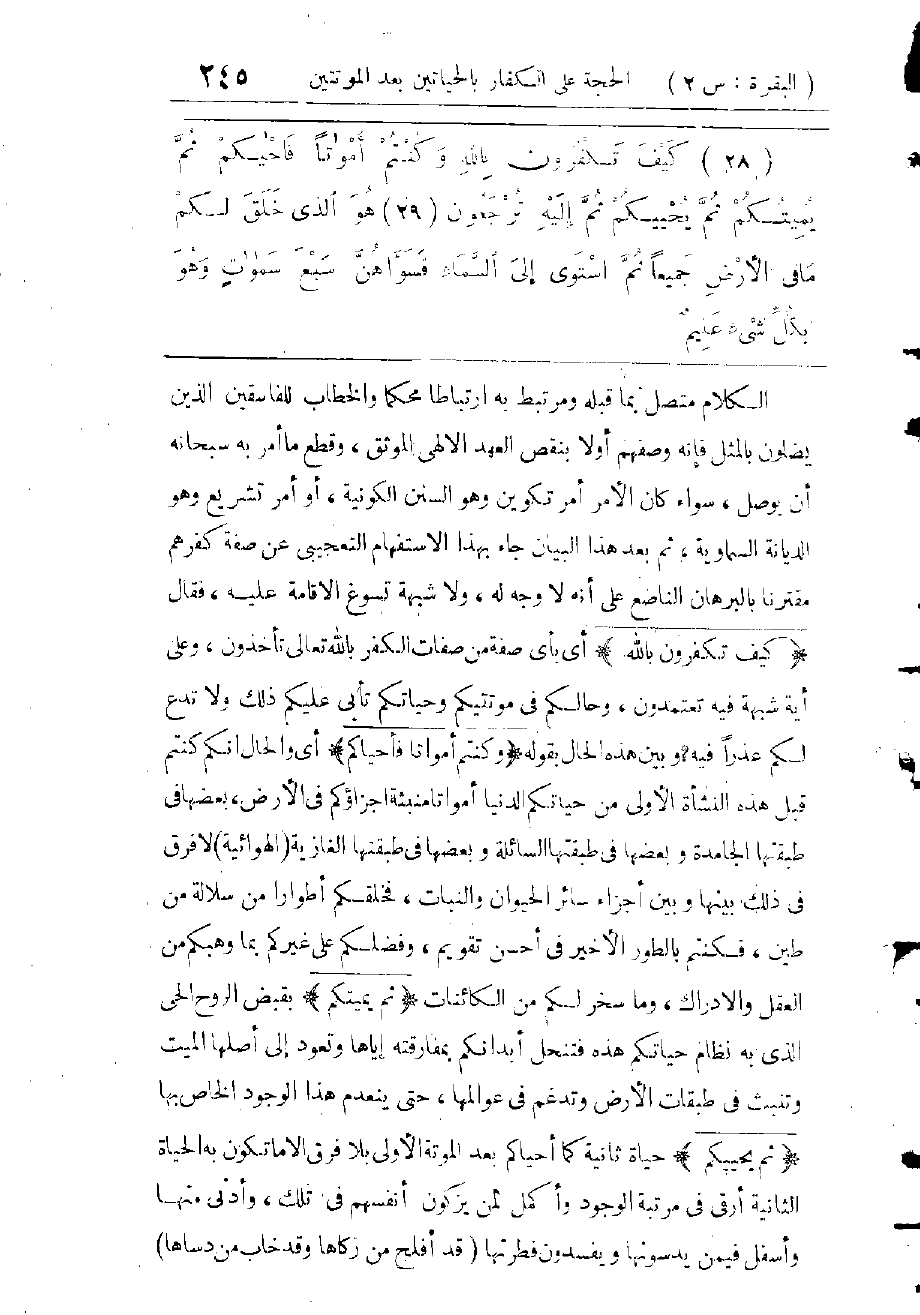 ( البقرة : س ٢ ) الحجة على الكفار بالحياتين بعد الموتتين ٢٤٥
( ٢٨ ) كَيْفَ تَكْفُرُونَ بِاللهِ وَكُنْتُمْ أَمْوَاتاً فَأَحْيَاكُمْ ثُمَّ
يُمِيتُكُمْ ثُمَّ يُحْيِيكُمْ ثُمَّ إِلَيْهِ تُرْجَعُونَ ( ٢٩ ) هُوَ ٱلَّذِى خَلَقَ لَكُمْ
مَافِى الْأَرْضِ جَمِيعاً ثُمَّ اسْتَوَى إِلَىَ ٱلسَّمَاءِ فَسَوَّاهُنَّ سَبْعَ سَمٰوَاتٍ وَهُوَ
بِكُلِّ شَىْءٍ عَلِيمٌ
الكلام متصل بما قبله ومرتبط به ارتباطا محكما والخطاب للفاسقين الذين
يضلون بالمثل فإنه وصفهم أولا بنقض العهد الالهى الموثق ، وقطع ما أمر به سبحانه
أن يوصل ، سواء كان الأمر أمر تكوين وهو السنن الكونية ، أو أمر تشريع وهو
الديانة السماوية ، ثم بعد هذا البيان جاء بهذا الاستفهام التعجيبى عن صفة كفرهم
مقترنا بالبرهان الناصع على أنه لا وجه له ، ولا شبهة تسوغ الاقامة عليه ، فقال
﴿ كيف تكفرون بالله ﴾ أى بأى صفة من صفات الكفر بالله تعالى تأخذون ، وعلى
أية شبهة فيه تعتمدون ، وحالكم فى موتتيكم وحياتيكم تأبى عليكم ذلك ولا تدع
لكم عذراً فيه؟ وبين هذه الحال بقوله ﴿ وكنتم أمواتا فأحياكم ﴾ أى والحال انكم كنتم
قبل هذه النشأة الأولى من حياتكم الدنيا أمواتا منبثة اجزاؤكم فى الأرض، بعضها فى
طبقتها الجامدة وبعضها فى طبقتها السائلة وبعضها فى طبقتها الغازية (الهوائية) لا فرق
فى ذلك بينها وبين أجزاء سائر الحيوان والنبات ، فخلقكم أطوارا من سلالة من
طين ، فكنتم بالطور الأخير فى أحسن تقويم ، وفضلكم على غيركم بما وهبكم من
العقل والادراك ، وما سخر لكم من الكائنات ﴿ ثم يميتكم ﴾ بقبض الروح الحى
الذى به نظام حياتكم هذه فتنحل أبدانكم بمفارقته إياها وتعود إلى أصلها الميت
وتنبث فى طبقات الأرض وتدغم فى عوالمها ، حتى ينعدم هذا الوجود الخاص بها
﴿ ثم يحييكم ﴾ حياة ثانية كما أحياكم بعد الموتة الأولى بلا فرق الا ما تكون به الحياة
الثانية أرقى فى مرتبة الوجود وأكمل لمن يزكون أنفسهم فى تلك ، وأدنى منها
وأسفل فيمن يدسونها ويفسدون فطرتها ( قد أفلح من زكاها وقد خاب من دساها)